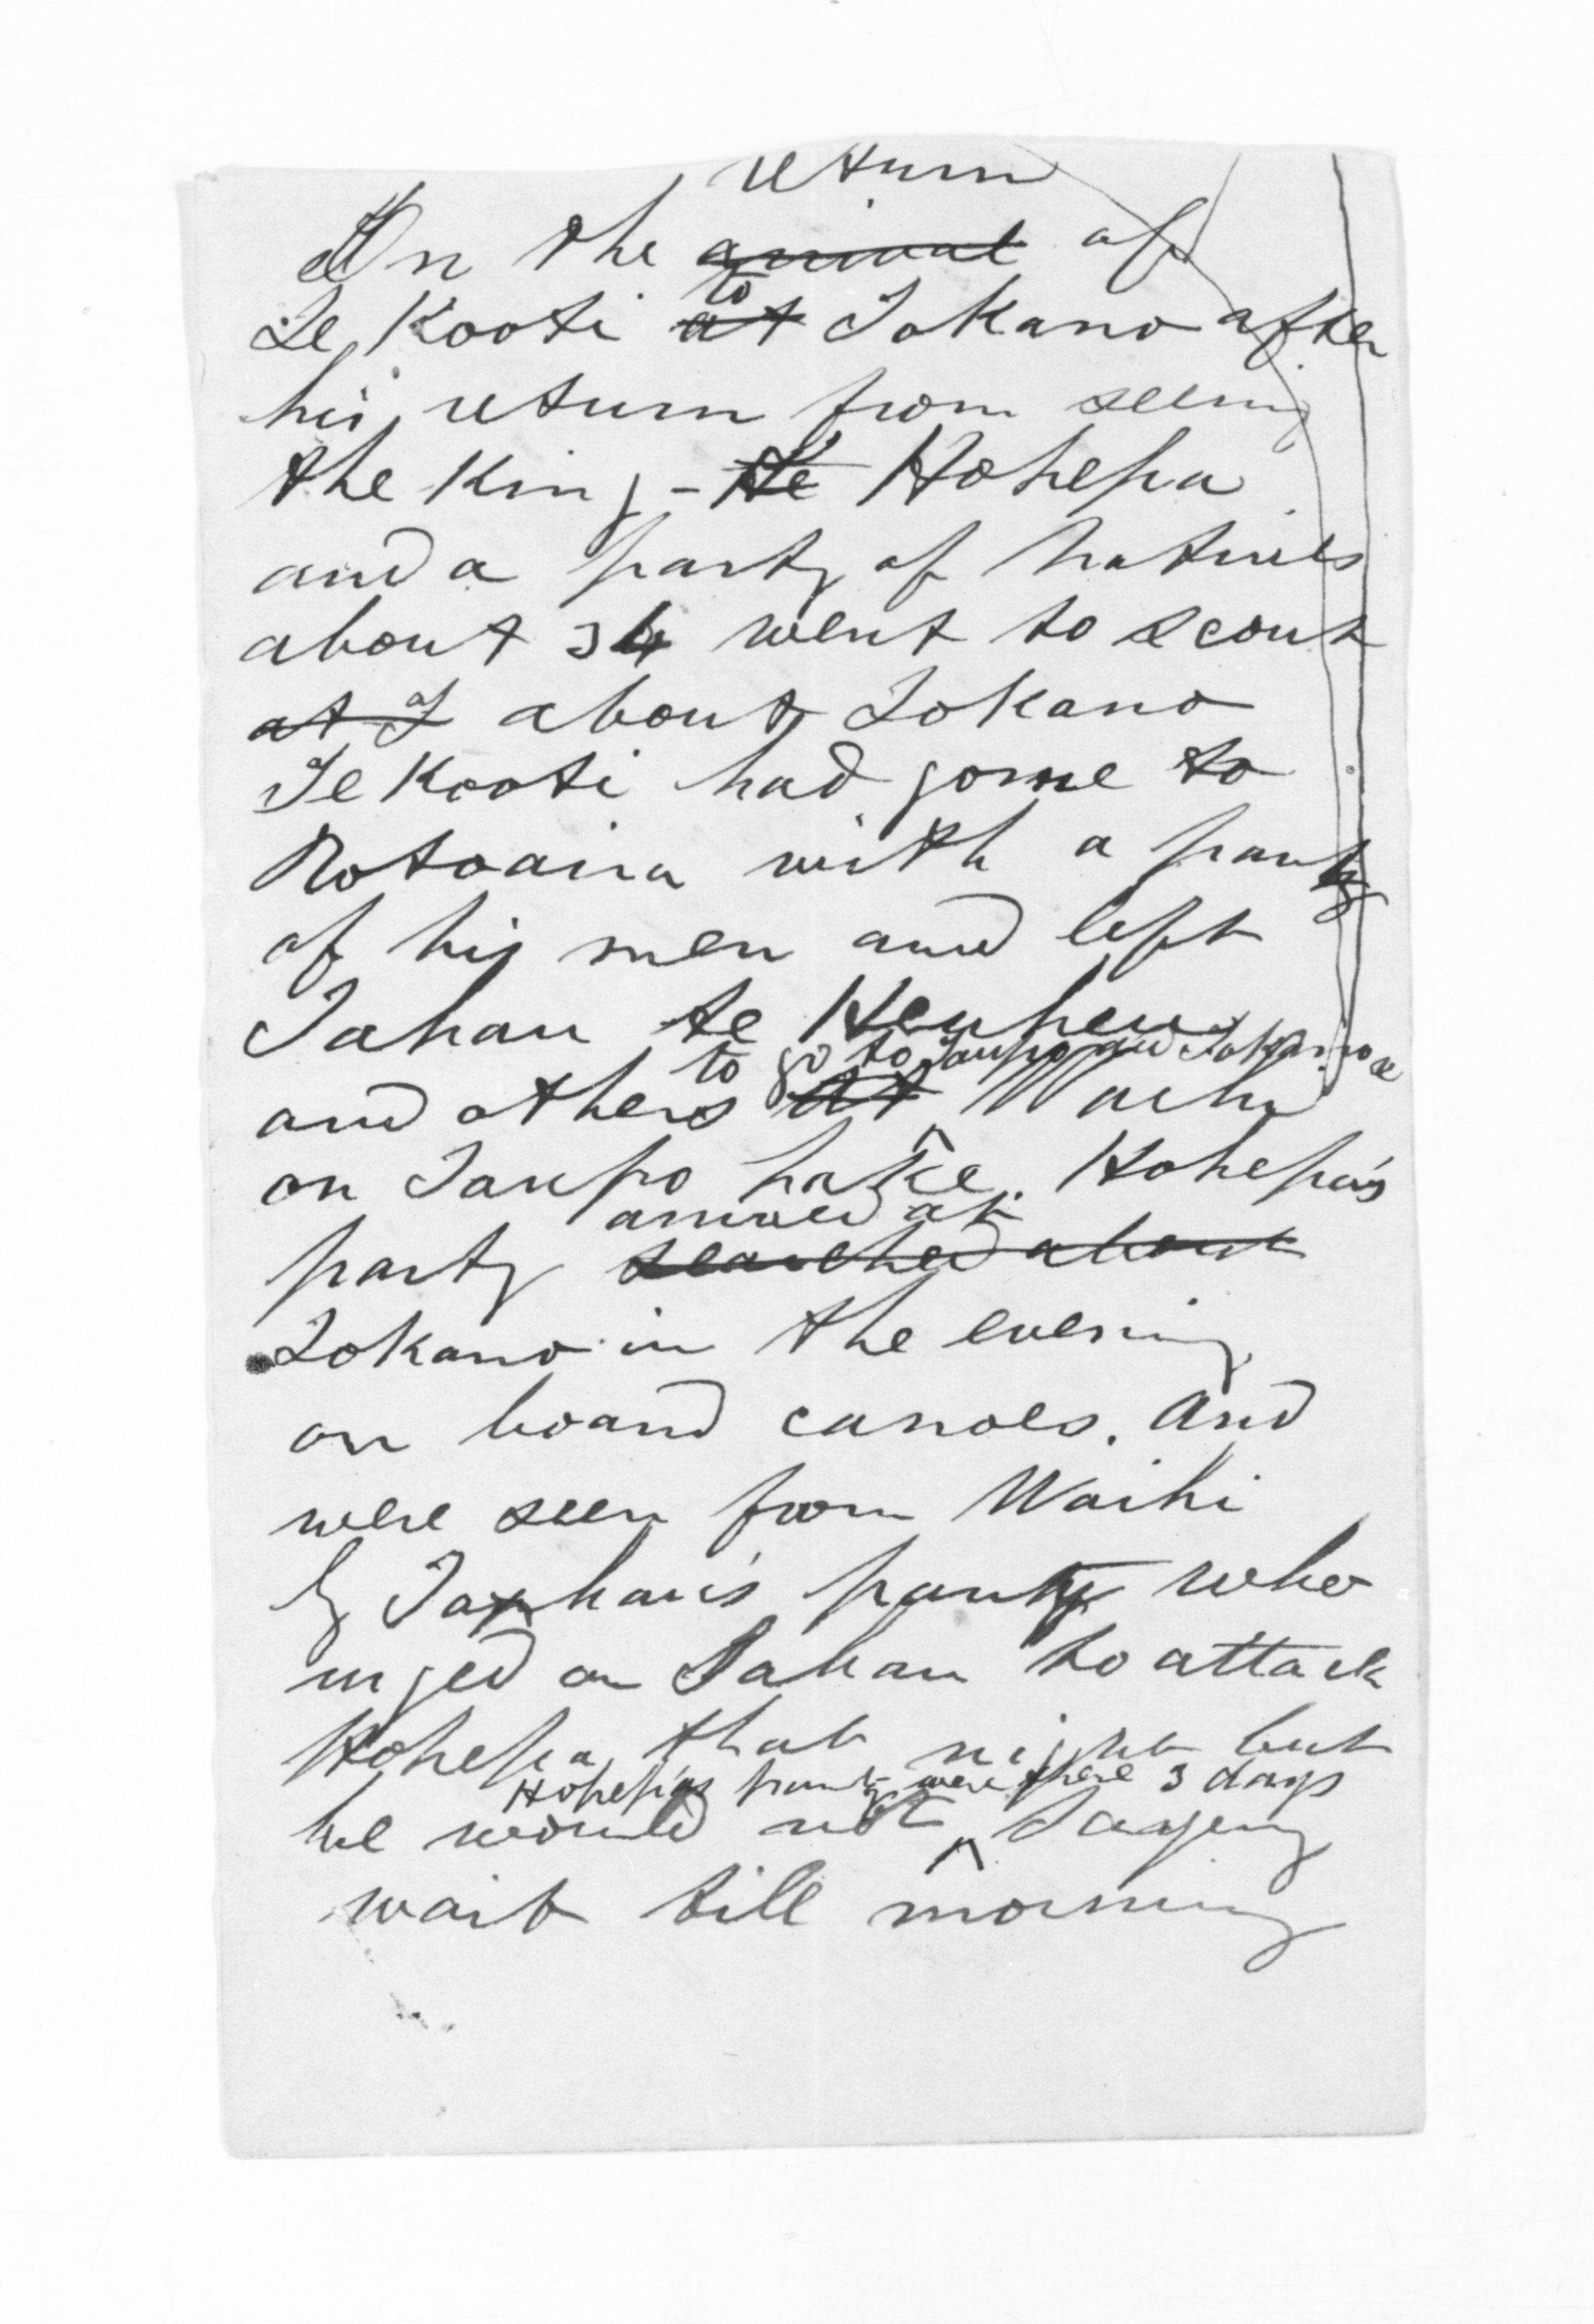 return
On the arrival of
to
Te Kooti at Tokano after
his return from seeing
the King - He Hohepa
and a party of natives
about 34 went to scout
at T about Tokano
Te Kooti had gone to
Rotoaira with a party
of his men and left
Tahau te Heuheu
to go to Taupo and Tokano &
and others at Waihi
on Taupo hake. Hohepa's
arrived at
party searched about
Tokano in the evening
on board canoes. And
were seen from Waihi
by Tahau's party who
urged on Tahau to attack
Hohepa that night but
Hohepa's party were there 3 days
he would not saying
wait till morning